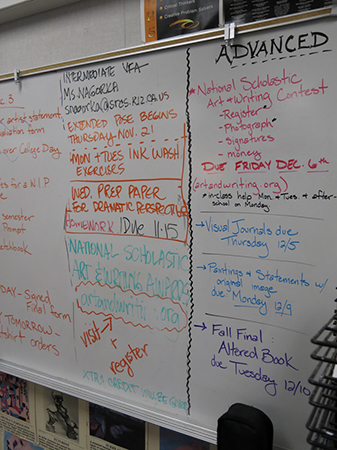 Critical Thinkers
Creative Problem Solvers
e 3
artist statement,
aluation form
over College Day,
es for a W.I.P
semester
Prompt
etchbook
DAY - Signed
Final form
TOMORROW -
shirt orders
INTERMEDIATE VFA
MS. NAGORKA
EXTENDED PISE BEGINS
THURSDAY - NOV. 21
MON + TUES INK WASH
EXERCISES
WED. PREP PAPER
FOR DRAMATIC PERSPECTIVE
HOMEWORK DUE 11.15
NATIONAL SCHOLASTIC
ART & WRITING AWARDS
artandwriting.org
visit → +
register
XTRA CREDIT
ADVANCED
• National Scholastic
Art & Writing Contest
- Register
- Photograph
- Signatures
- money
DUE FRIDAY DEC. 6th
(artandwriting.org)
* in-class help Mon. & Tues. & after-
school on Monday
→ Visual Journals due
Thursday 12/5
→ Paintings & Statements w/
original image
due Monday 12/9
→ Fall Final:
Altered Book
due Tuesday 12/10